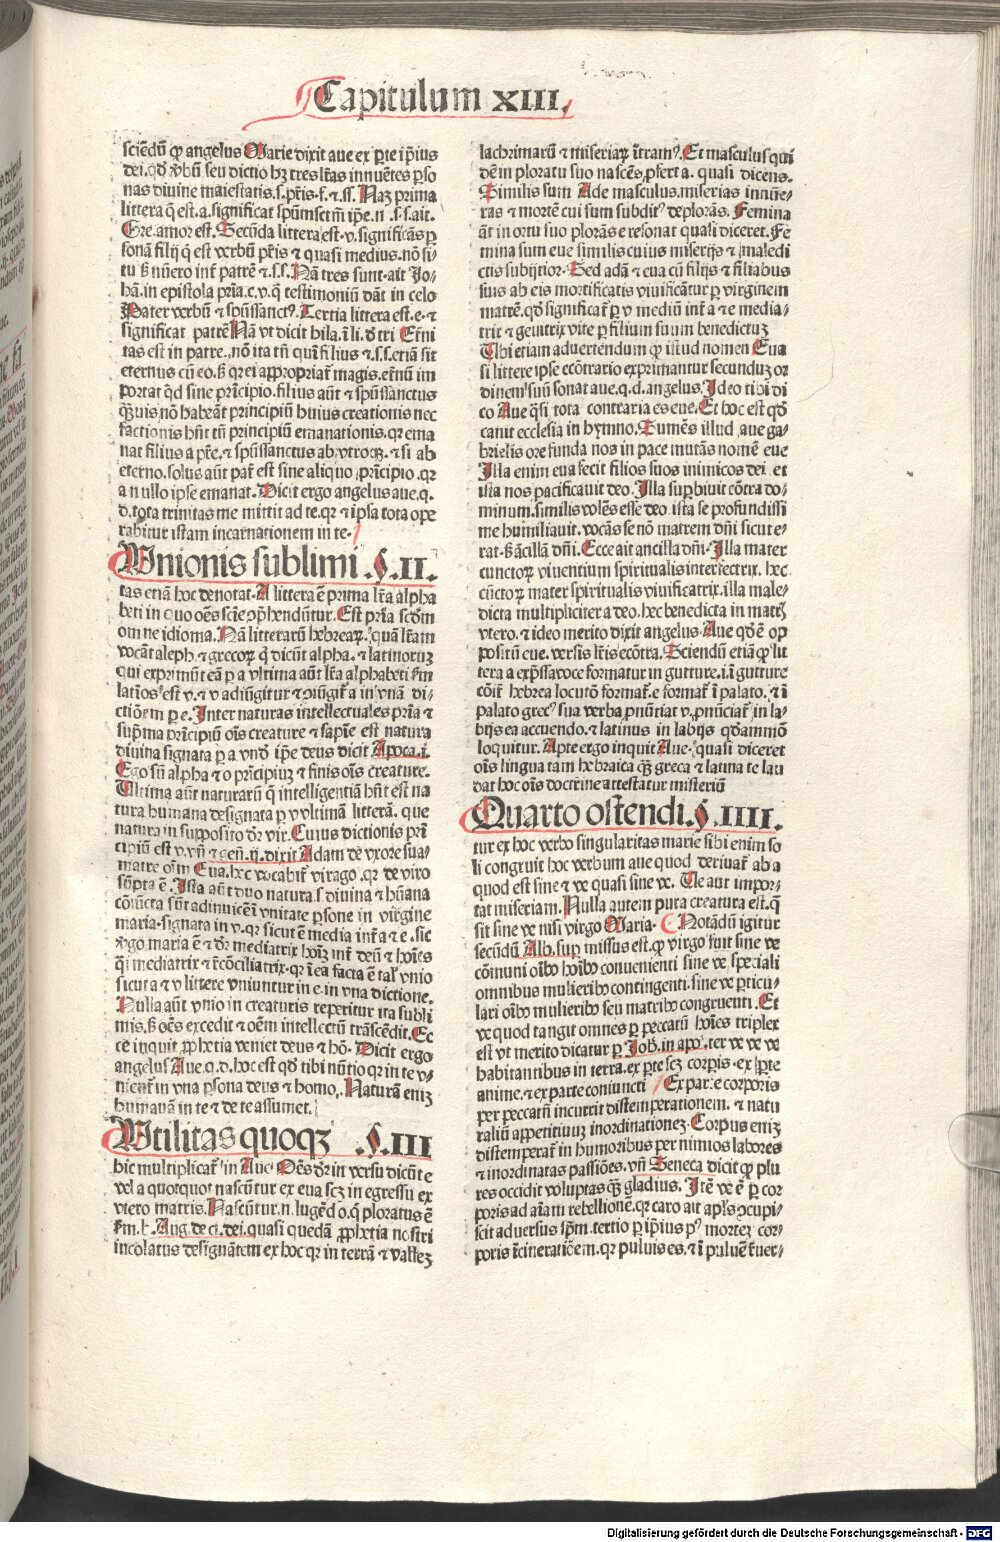 Capitulum XIII.
sciēdū ꝙ angelus Marie dixit aue ex ꝑte ip̄ius
dei. qd̄ v̄bū seu dictio hꝫ tres lr̄as innuētes ꝑso
nas diuine maiestatis. s. pr̄tis. f. ⁊ ss. Nā prima
littera q̄ est .a. significat spūmsctm̄ ip̄e. n . s. s. ait.
Gre. amor est. Secūda littera est .v. significās ꝑ
sonā filij q̄ est verbū pr̄is ⁊ quasi medius. nō si
tu sꝫ nūero int̄ patrē ⁊ .s. s. Nā tres sunt. ait Jo-
hā. in epistola pr̄ia. c. v. q̄ testimoniū dāt in celo
Pater verbū ⁊ spūssanctꝰ. Tertia littera est .e. ⁊
significat patrē Nā vt dicit hila. ī li. d̄ tri Et̄ni
tas est in patre.. nō ita tn̄ qui filius ⁊ .s. s. etiā sit
eternus cū eo. sꝫ qꝛ ei appropriat̄ magis. et̄nū im
portat qd̄ sine prīcipio. filius aūt ⁊ spūssanctus
qꝫuis nō habeāt principiū huius creationis nec
factionis hn̄t tn̄ principiū emanationis. qꝛ ema
nat filius a pr̄e. ⁊ spūssanctus ab vtroqꝫ. ⁊ si ab
eterno. solus aūt pat̄ est sine aliquo prīcipio .qꝛ
a nullo ipse emanat. Dicit ergo angelus aue. q.
d. tota trinitas me mittit ad te. qꝛ ⁊ ipsa tota ope
rabitur istam incarnationem in te.
Vnionis sublimi .§.II.
tas etiā hoc denotat. A littera ē prima lr̄a alpha
beti in quo oēs sciē cōp̄hendūtur. Est pr̄ia scd̄m
omne idioma. Nā litterarū hebreaꝝ. quā lr̄am
vocāt aleph. ⁊ grecoꝝ q̄ dicūt alpha. ⁊ latinoruꝫ
qui exprimūt eā ꝑ a vltima aūt lr̄a alphabeti fm̄
latīos est v. ⁊ v adiūgitur ⁊ ꝯiūgit̄ a in vnā di-
ctiōem ꝑ e. Inter naturas intellectuales pr̄ia ⁊
sup̄ma prīcipiū oīs creature ⁊ sapīe est natura
diuina signata ꝑ a vnd̄ ip̄e deus dicit Apoca.i.
Ego sū alpha ⁊ o prīcipiuꝫ ⁊ finis oīs creature.
Ultima aūt naturarū q̄ intelligentiā hn̄t est na
tura humana designata ꝑ v vltimā litterā. que
natura in supposito dr̄ vir. Cuius dictionis prī
cipiū est v. vn̄ ⁊ gen̄. ij. dixit Adam de vxore sua-
matre oīm Eua. hec vocabit̄ virago .qꝛ de viro
sūpta ē. Ista aūt duo natura. s. diuina ⁊ hūana
cōiūcta sūt adinuicē ī vnitate ꝑsone in virgine
maria. signata in v. qꝛ sicut ē media int̄ a ⁊ e. sic
v̄go. maria ē ⁊ dr̄ mediatrix hoīꝫ int̄ deū ⁊ hoīes
q̄ mediatrix ⁊ recōciliatrix. qꝛ ī ea facta ē tal̄ vnio
sicut a ⁊ v littere vniuntur in e. in vna dictione.
Nulla aūt vnio in creaturis reperitur ita subli
mis. sꝫ oēs excedit ⁊ oēm intellectū trāscēdit. Ec
ce inquit ꝓphetia veniet deus ⁊ hō. Dicit ergo
angelus Aue. q. d. hoc est qd̄ tibi nūtio qꝛ in te v-
nicat̄ in vna ꝑsona deus ⁊ homo,. Naturā eniꝫ
humanā in te ⁊ de te assumet.
Vtilitas quoqꝫ .§.III
hic multiplicat̄ in Aue. Oēs dr̄ in versu dicūt e
vel a quotquot nascūtur ex eua scꝫ in egressu ex
vtero matris. Nascūtur .n. lugēdo. q̄ ploratus ē
fm̄ b. Aug. de ci. dei. quasi quedā ꝓphetia nostri
incolatus designātem ex hoc qꝛ in terrā ⁊ valleꝫ
lachrimarū ⁊ miseriaꝝ ītramꝰ. Et masculus qui
dē in ploratu suo nascēs, ꝓfert a. quasi dicens.
Similis sum Ade masculus. miserias innūe-
ras ⁊ mortē cui sum subditꝰ deplorās. Femina
āt in ortu suo plorās e resonat quasi diceret. Fe
mina sum eue similis cuius miserijs ⁊ maledi
ctis subijcior. Sed adā ⁊ eua cū filijs ⁊ filiabus
suis ab eis mortificatis viuificātur ꝑ virginem
matrē. qd̄ significat̄ ꝑ v mediū int̄ a ⁊ e media-
trix ⁊ genitrix vite ꝑ filium suum benedictuꝫ
Vbi etiam aduertendum ꝙ illud nomen Eua
si littere ipse ecōtrario exprimantur secunduꝫ or
dinem suū sonat aue. q. d. angelus. Ideo tibi di
co Aue q̄si tota contraria es eue. Et hoc est qd̄
canit ecclesia in hymno. Sumēs illud aue ga-
brielis ore funda nos in pace mutās nomē eue
Illa enim eua fecit filios suos inimicos dei. et
ista nos pacificauit deo. Illa suꝑbiuit cōtra do-
minum. similis volēs esse deo. ista se profundissi
me humiliauit. vocās se nō matrem dn̄i sicut e-
rat. sꝫ ācillā dn̄i. Ecce ait ancilla dn̄i. Illa mater
cunctoꝝ viuentium spiritualis interfectrix. hec
cūctoꝝ mater spiritualis viuificatrix. illa male-
dicta multipliciter a deo. hec benedicta in matꝫ
vtero. ⁊ ideo merito dixit angelus. Aue qd̄ ē op
positū eue. versis lr̄is ecōtra. Sciendū etiā ꝙ lit
tera a exp̄ssa voce formatur in gutture. i. ī gutture
cōit̄ hebrea locutō format̄. e format̄ ī palato. ⁊ ī
palato grecꝰ sua verba ꝓnūtiat v. ꝓnūciat̄ in la-
bijs ea accuendo. ⁊ latinus in labijs qd̄ammō
loquitur. Apte ergo inquit Aue. quasi diceret
oīs lingua tam hebraica qꝫ greca ⁊ latina te lau
dat hoc oīs doctrine attestatur misteriū
Quarto ostendi.§.IIII.
tur ex hoc verbo singularitas marie sibi enim so
li congruit hoc verbum aue quod deriuat̄ ab a
quod est sine ⁊ ve quasi sine ve. Ue aut impor-
tat miseriam. Nulla autem pura creatura est. q̄
sit sine ve nisi virgo Maria. Notādū igitur
secūdū Alb. sup missus est. ꝙ virgo fuit sine ve
cōmuni oībꝰ hoībꝰ conuenienti sine ve speciali
omnibus mulieribꝰ contingenti. sine ve ꝑticu-
lari oībꝰ mulieribꝰ seu matribꝰ congruenti. Et
ve quod tangit omnes ꝑ peccatū hoīes triplex
est vt merito dicatur ꝑ Joh. in apo. ter ve ve ve
habitantibus in terra. ex ꝑte scꝫ corpis. ex ꝑte
anime. ⁊ ex parte coniuncti Ex parte corporis
per peccatū incurrit distemperationem. ⁊ natu
raliū appetitiuuꝫ inordinationeꝫ. Corpus eniꝫ
distemperat̄ in humoribus per nimios labores
⁊ inordinatas passiōes. vn̄ Seneca dicit ꝙ plu
res occidit voluptas qꝫ gladius. Itē ve ē ꝑ cor
poris ad aīam rebellionē. qꝛ caro ait apl̄s ꝯcupi-
scit aduersus spm̄. tertio ꝑ ip̄ius pꝰ morteꝫ cor-
poris īcineratiōem. qꝛ puluis es. ⁊ ī puluē r̄uer-
Digitalisierung gefördert durch die Deutsche Forschungsgemeinschaft - DFG